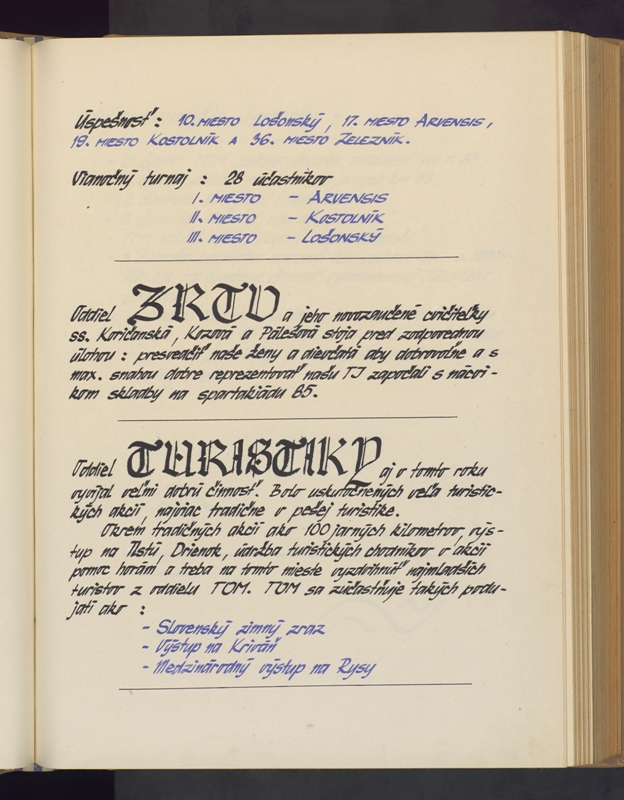 Úspešnosť : 10. MIESTO LOŠONSKÝ, 17. MIESTO ARVENSIS,
19. MIESTO KOSTOLNÍK A 36. MIESTO ŽELEZNÍK.
Vianočný turnaj : 28 účastníkov
I. MIESTO – ARVENSIS
II. MIESTO – KOSTOLNÍK
III. MIESTO – LOŠONSKÝ
Oddiel ZRTV a jeho novozaučené cvičiteľky
ss. Koričanská, Kozová a Pálešová stoja pred zodpovednou
úlohou : presvedčiť naše ženy a dievčatá aby dobrovoľne a s
max. snahou dobre reprezentovať našu TJ započali s nácvi-
kom skladby na spartakiádu 85.
Oddiel TURISTIKY aj v tomto roku
vyvíjal veľmi dobrú činnosť. Bolo uskutočnených veľa turistic-
kých akcií, najviac tradične v pešej turistike.
Okrem tradičných akcií ako 100 jarných kilometrov, výs-
tup na Tlstú, Drienok, údržba turistických chodníkov v akcii
pomoc horám a treba na tomto mieste vyzdvihnúť najmladších
turistov z oddielu TOM. TOM sa zúčastňuje takých podu-
jatí ako :
- Slovenský zimný zraz
- Výstup na Kriváň
- Medzinárodný výstup na Rysy